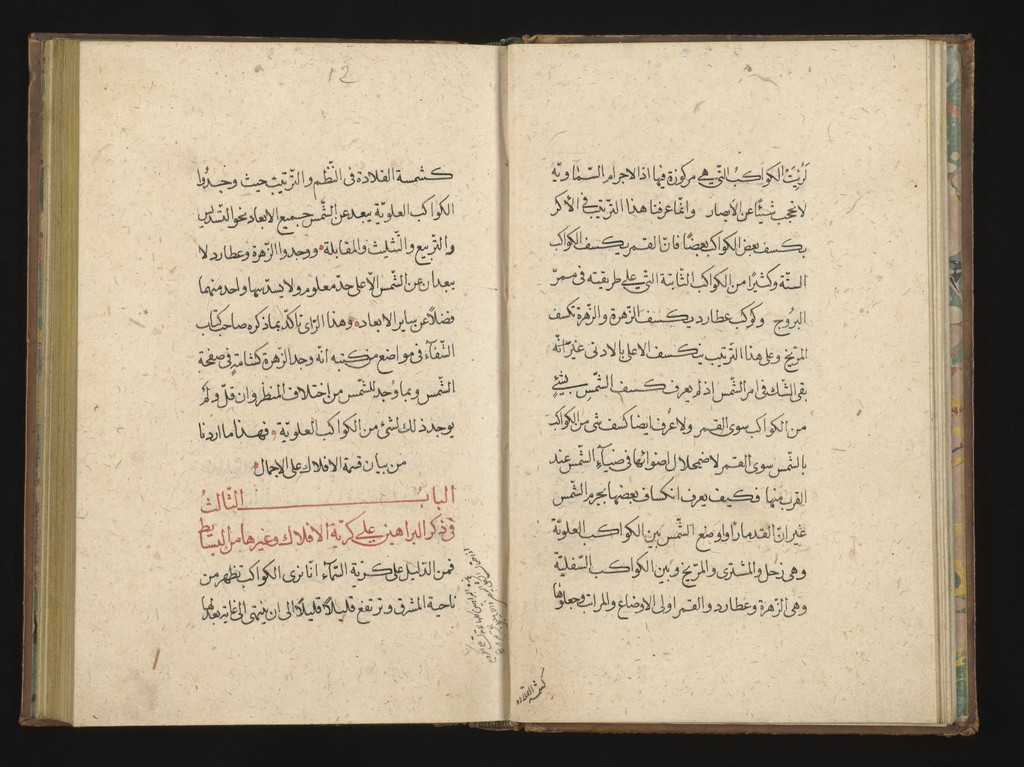 لرؤيت الكواكب التي هي مركوزة فيها اذ الاجرام السماوية
لا تحجب شيئا عن الابصار وانما عرفنا هذا الترتيب في الاكر
بكسف بعض الكواكب بعضا فان القمر يكسف الكواكب
الستة وكثيرا من الكواكب الثابتة التي على طريقته في ممر
البروج وكوكب عطارد يكسف الزهرة والزهرة تكسف
المريخ وعلى هذا الترتيب يكسف الاعلى بالادنى غير انه
بقى الشك في امر الشمس اذ لم يعرف كسف الشمس بشيئ
من الكواكب سوى القمر ولا عرف ايضا كسف شئ من الكواكب
بالشمس سوى القمر لاضمحلال اضوائها في ضياء الشمس عند
القرب منها فكيف يعرف انكساف بعضها بجرم الشمس
غير ان القدماء راوا وضع الشمس بين الكواكب العلوية
وهى زحل والمشترى والمريخ وبين الكواكب السفلية
وهى الزهرة وعطارد والقمر اولى الاوضاع والمراتب وجعلوها
كشمسة القلادة
12
كشمسة القلادة في النظم والترتيب حيث وجدوا
الكواكب العلوية يبعد عن الشمس جميع الابعاد نحو التسديس
والتربيع والتثليث والمقابلة ووجدوا الزهرة وعطارد لا
يبعدان عن الشمس الا على حد معلوم ولا يسدسها واحد منهما
فضلا عن ساير الابعاد وهذا الراى تاكد بما ذكره صاحب كتاب
الشفاء في مواضع من كتبه انه وجد الزهرة كشامة في صفحة
الشمس وبما وجد للشمس من اختلاف المنظر وان قل ولم
يوجد ذلك لشئ من الكواكب العلوية فهذا ما اردنا
من بيان قسمة الافلاك على الاجمال
الباب الثالث
في ذكر البراهين على كرية الافلاك وغيرها من البسايط
فمن الدليل على كرية السماء انا نرى الكواكب تظهر من
ناحية المشرق وترتفع قليلا قليلا الى ان ينتهى الى غاية بعدها